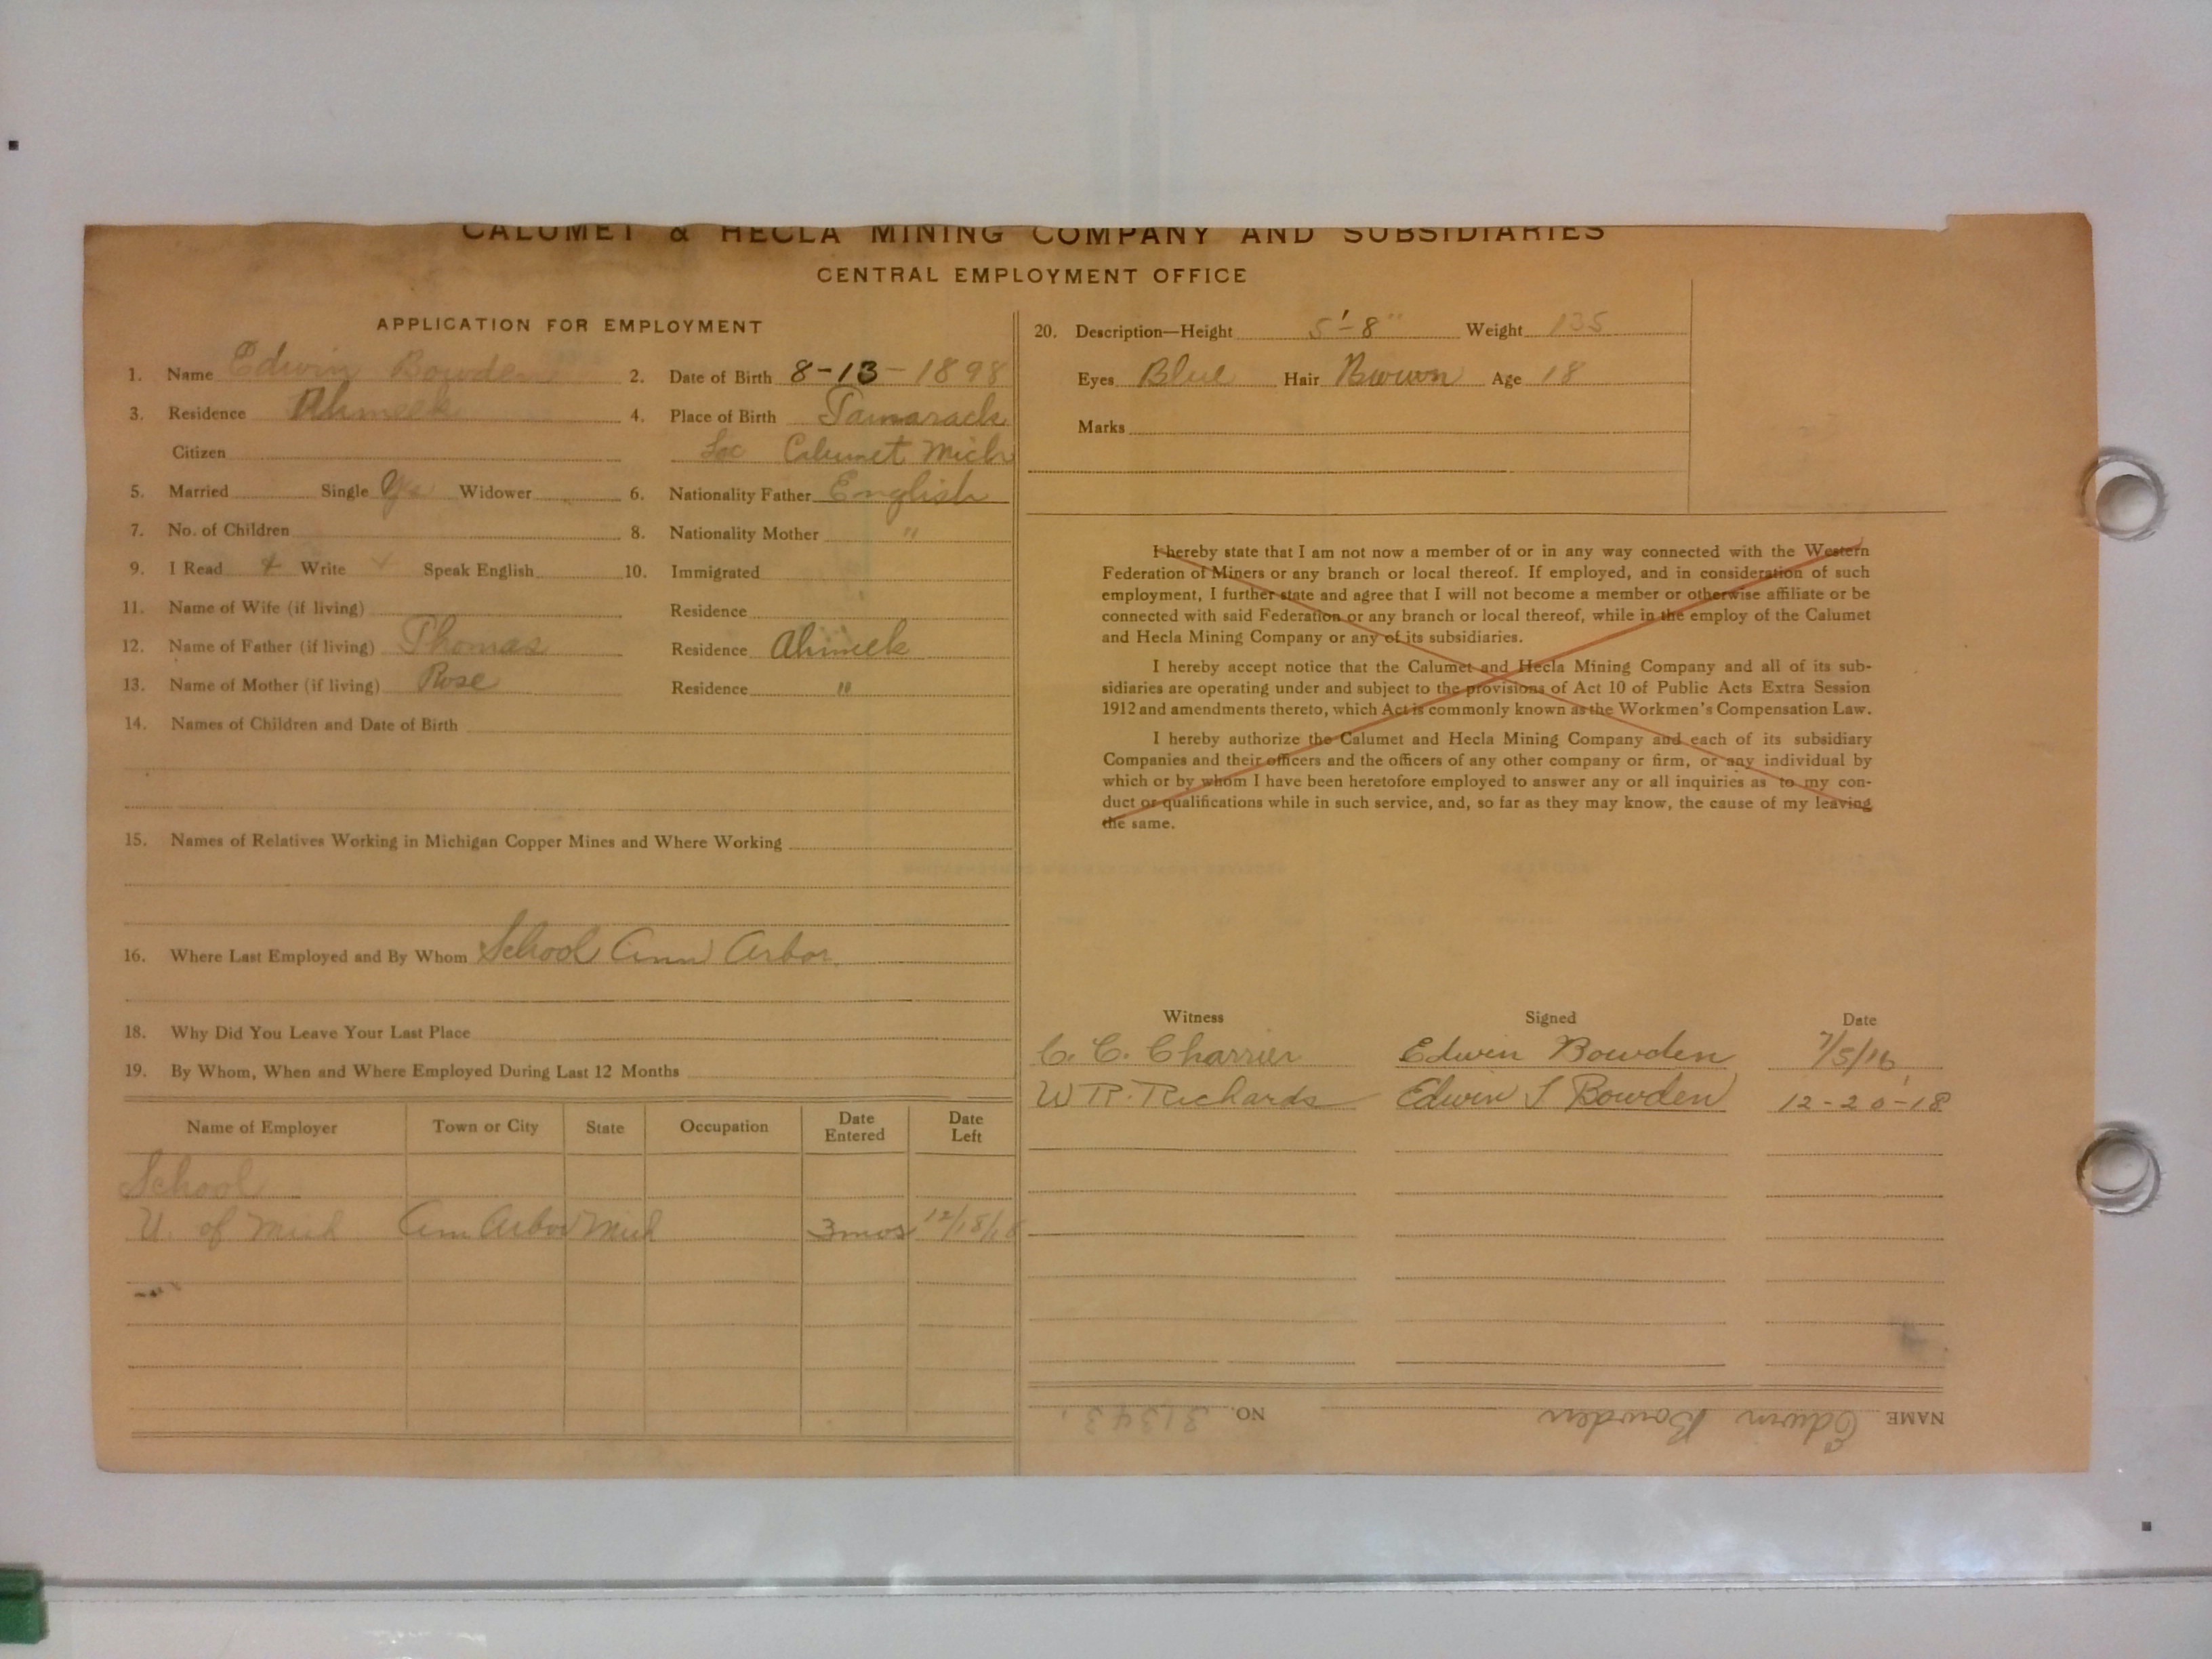 CALUMET & HECLA MINING COMPANY AND SUBSIDIARIES
CENTRAL EMPLOYMENT OFFICE
APPLICATION FOR EMPLOYMENT
1. Name Edwin Bowden 2. Date of Birth 8-13-1898
3. Residence Ahmeek 4. Place of Birth Tamarack
Citizen Loc Calumet Mich
5. Married Single Yes Widower 6. Nationality Father English
7. No. of Children 8. Nationality Mother "
9. I Read + Write + Speak English 10. Immigrated
11. Name of Wife (if living) Residence
12. Name of Father (if living) Thomas Residence Ahmeek
13. Name of Mother (if living) Rose Residence "
14. Names of Children and Date of Birth
15. Names of Relatives Working in Michigan Copper Mines and Where Working
16. Where Last Employed and By Whom School Ann Arbor
18. Why Did You Leave Your Last Place
19. By Whom, When and Where Employed During Last 12 Months
Name of Employer Town or City State Occupation Date Entered Date Left
School
U. of Mich Ann Arbor Mich 3 mos 12/18/18
20. Description—Height 5'-8" Weight 135
Eyes Blue Hair Brown Age 18
Marks
I hereby state that I am not now a member of or in any way connected with the Western
Federation of Miners or any branch or local thereof. If employed, and in consideration of such
employment, I further state and agree that I will not become a member or otherwise affiliate or be
connected with said Federation or any branch or local thereof, while in the employ of the Calumet
and Hecla Mining Company or any of its subsidiaries.
I hereby accept notice that the Calumet and Hecla Mining Company and all of its sub-
sidiaries are operating under and subject to the provisions of Act 10 of Public Acts Extra Session
1912 and amendments thereto, which Act is commonly known as the Workmen's Compensation Law.
I hereby authorize the Calumet and Hecla Mining Company and each of its subsidiary
Companies and their officers and the officers of any other company or firm, or any individual by
which or by whom I have been heretofore employed to answer any or all inquiries as to my con-
duct or qualifications while in such service, and, so far as they may know, the cause of my leaving
the same.
Witness Signed Date
C. C. Charrier Edwin Bowden 7/5/16
W R. Richards Edwin S Bowden 12-20-18
NAME Edwin Bowden NO. 31343